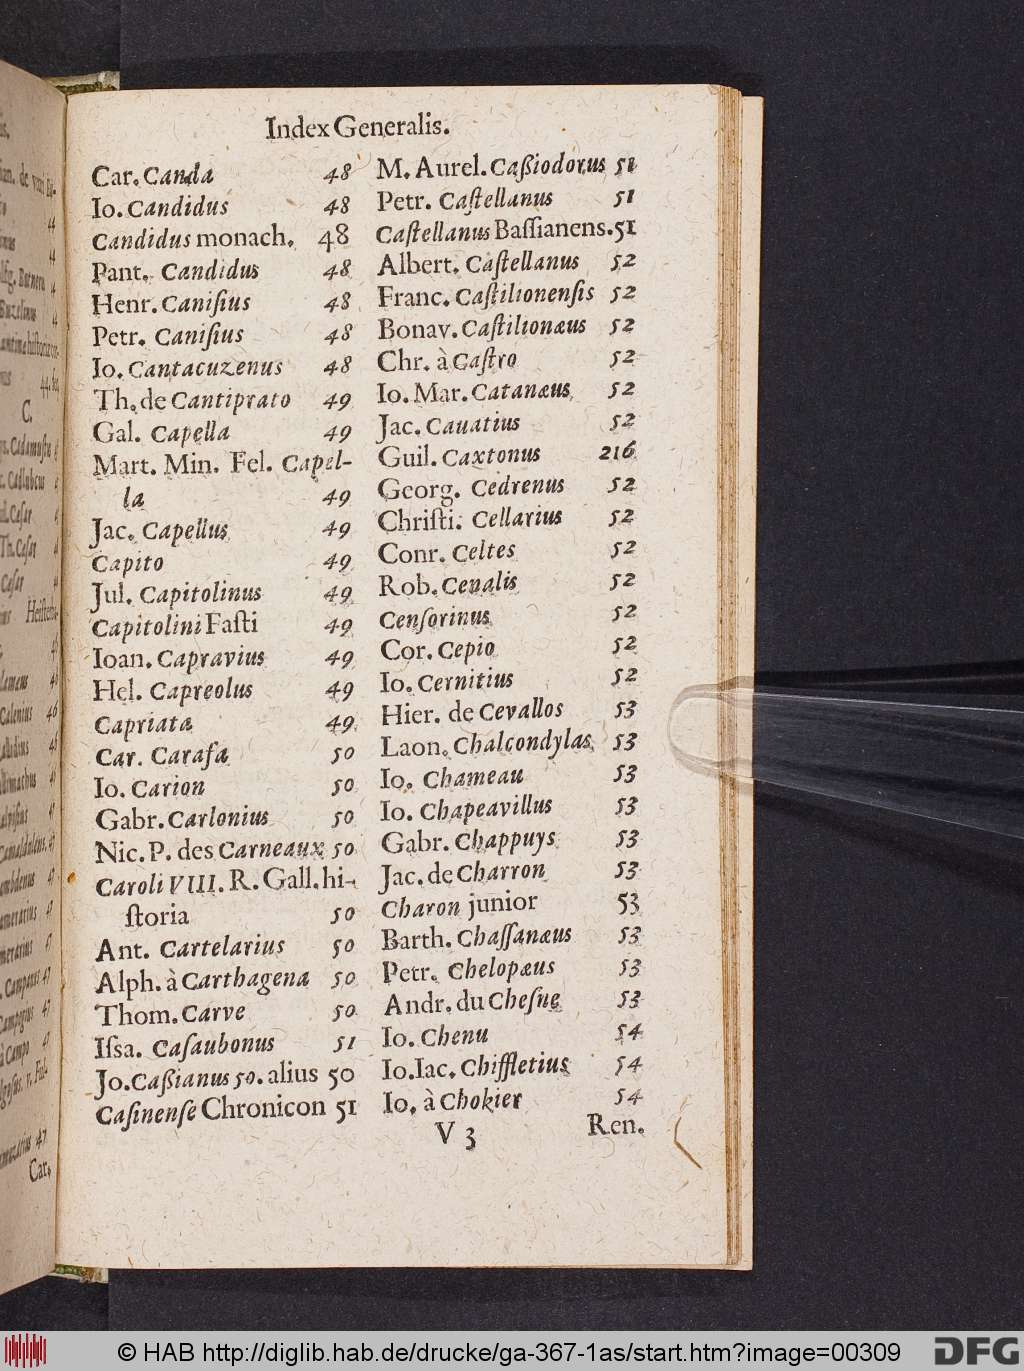 Index Generalis.
Car. Canda 48
Io. Candidus 48
Candidus monach. 48
Pant. Candidus 48
Henr. Caniſius 48
Petr. Caniſius 48
Io. Cantacuzenus 48
Th. de Cantiprato 49
Gal. Capella 49
Mart. Min. Fel. Capel-
la 49
Jac. Capellus 49
Capito 49
Jul. Capitolinus 49
Capitolini Faſti 49
Ioan. Capravius 49
Hel. Capreolus 49
Capriata 49
Car. Carafa 50
Io. Carion 50
Gabr. Carlonius 50
Nic. P. des Carneaux 50
Caroli VIII. R. Gall. hi-
ſtoria 50
Ant. Cartelarius 50
Alph. à Carthagena 50
Thom. Carve 50
Iſsa. Caſaubonus 51
Jo. Caßianus 50. alius 50
Caſinenſe Chronicon 51
M. Aurel. Caßiodorus 51
Petr. Caſtellanus 51
Caſtellanus Baſſianens. 51
Albert. Caſtellanus 52
Franc. Caſtilionenſis 52
Bonav. Caſtilionæus 52
Chr. à Caſtro 52
Io. Mar. Catanæus 52
Jac. Cauatius 52
Guil. Caxtonus 216
Georg. Cedrenus 52
Chriſti. Cellarius 52
Conr. Celtes 52
Rob. Cenalis 52
Cenſorinus 52
Cor. Cepio 52
Io. Cernitius 52
Hier. de Cevallos 53
Laon. Chalcondylas 53
Io. Chameau 53
Io. Chapeavillus 53
Gabr. Chappuys 53
Jac. de Charron 53
Charon junior 53
Barth. Chaſſanæus 53
Petr. Chelopæus 53
Andr. du Cheſne 53
Io. Chenu 54
Io. Iac. Chiffletius 54
Io. à Chokier 54
V 3 Ren.
© HAB http://diglib.hab.de/drucke/ga-367-1as/start.htm?image=00309
DFG